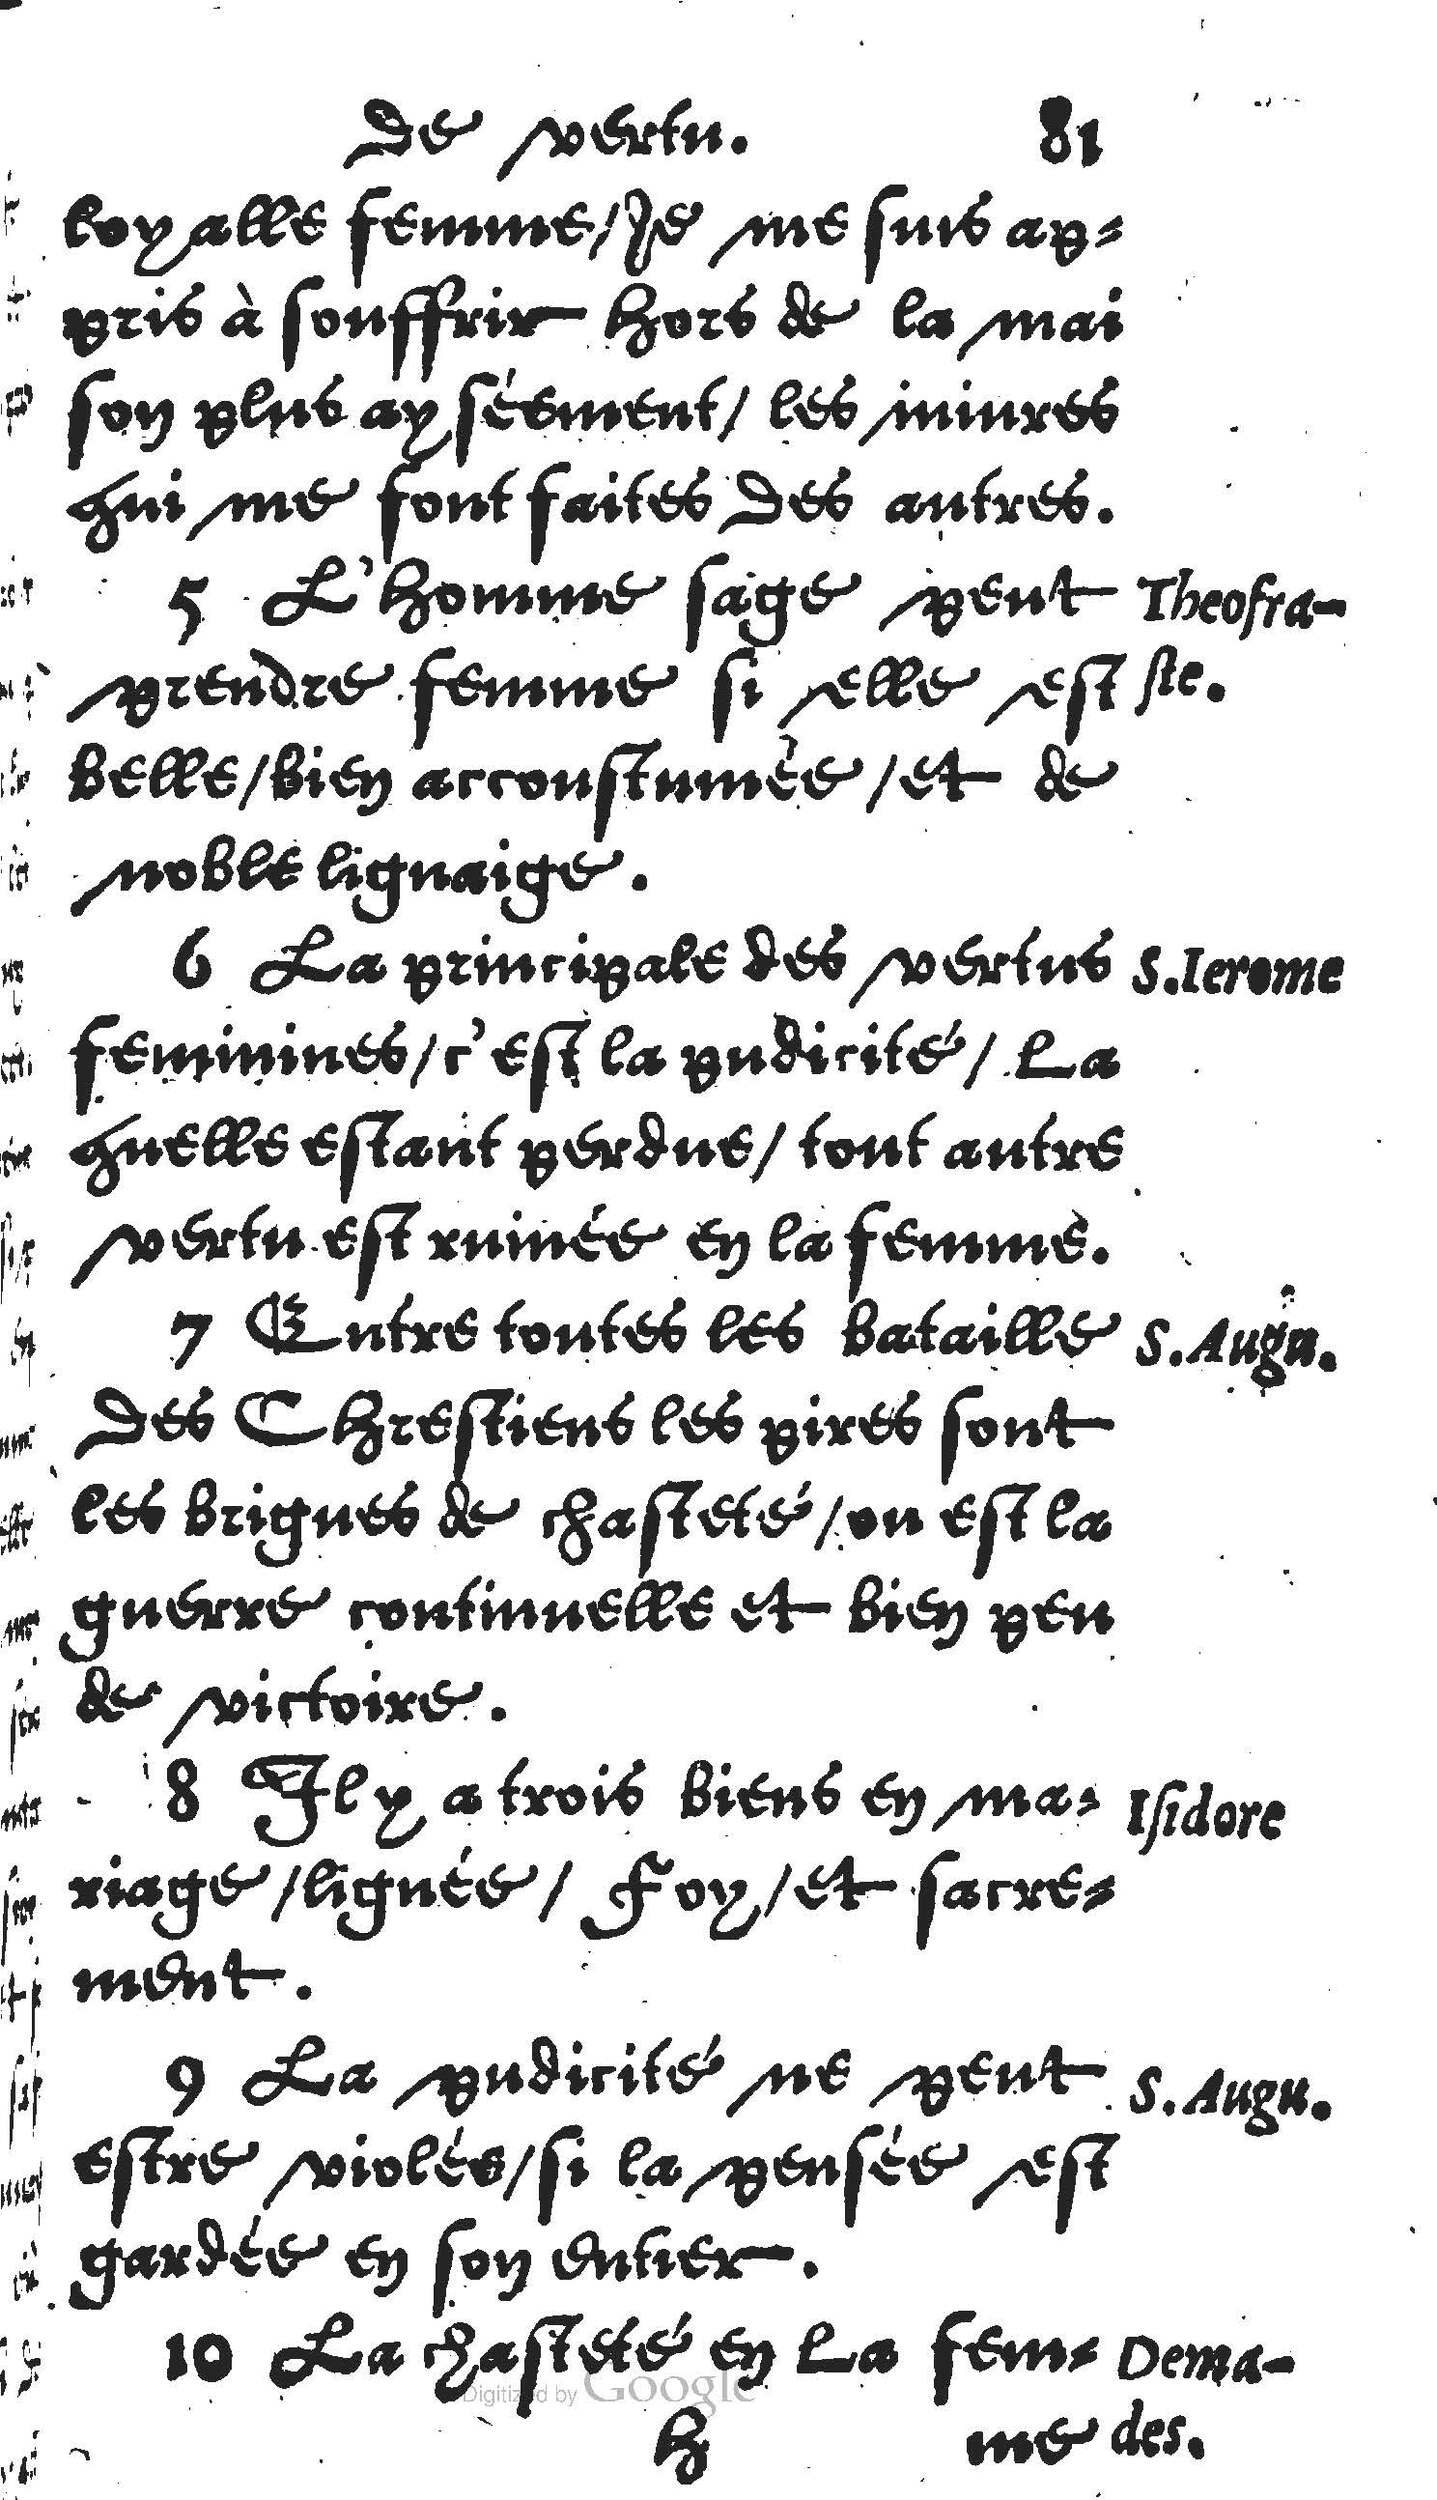 de vertu. 81
loyalle femme/Je me suis ap-
pris à souffrir hors de la mai
son plus aysément/ les iniures
qui me sont faites des autres.
5 L'homme sage peut Theofra-
prendre femme si elle est ste.
belle/bien accoustumée/et de
noble lignaige.
6 La principale des vertus S.Ierome
feminines/c'est la pudicité/ La
quelle estant perdue/ tout autre
vertu est ruinée en la femme.
7 Entre toutes les bataille S.Augu.
des Chrestiens les pires sont
les brigues de chasteté/ou est la
guerre continuelle et bien peu
de victoire.
8 Il y a trois biens en ma- Isidore
riage/lignée/ Foy/et sacre-
ment.
9 La pudicité ne peut S.Augu.
estre violée/si la pensée est
gardée en son entier.
10 La chasteté en La fem- Dema-
h me des.
Digitized by Google